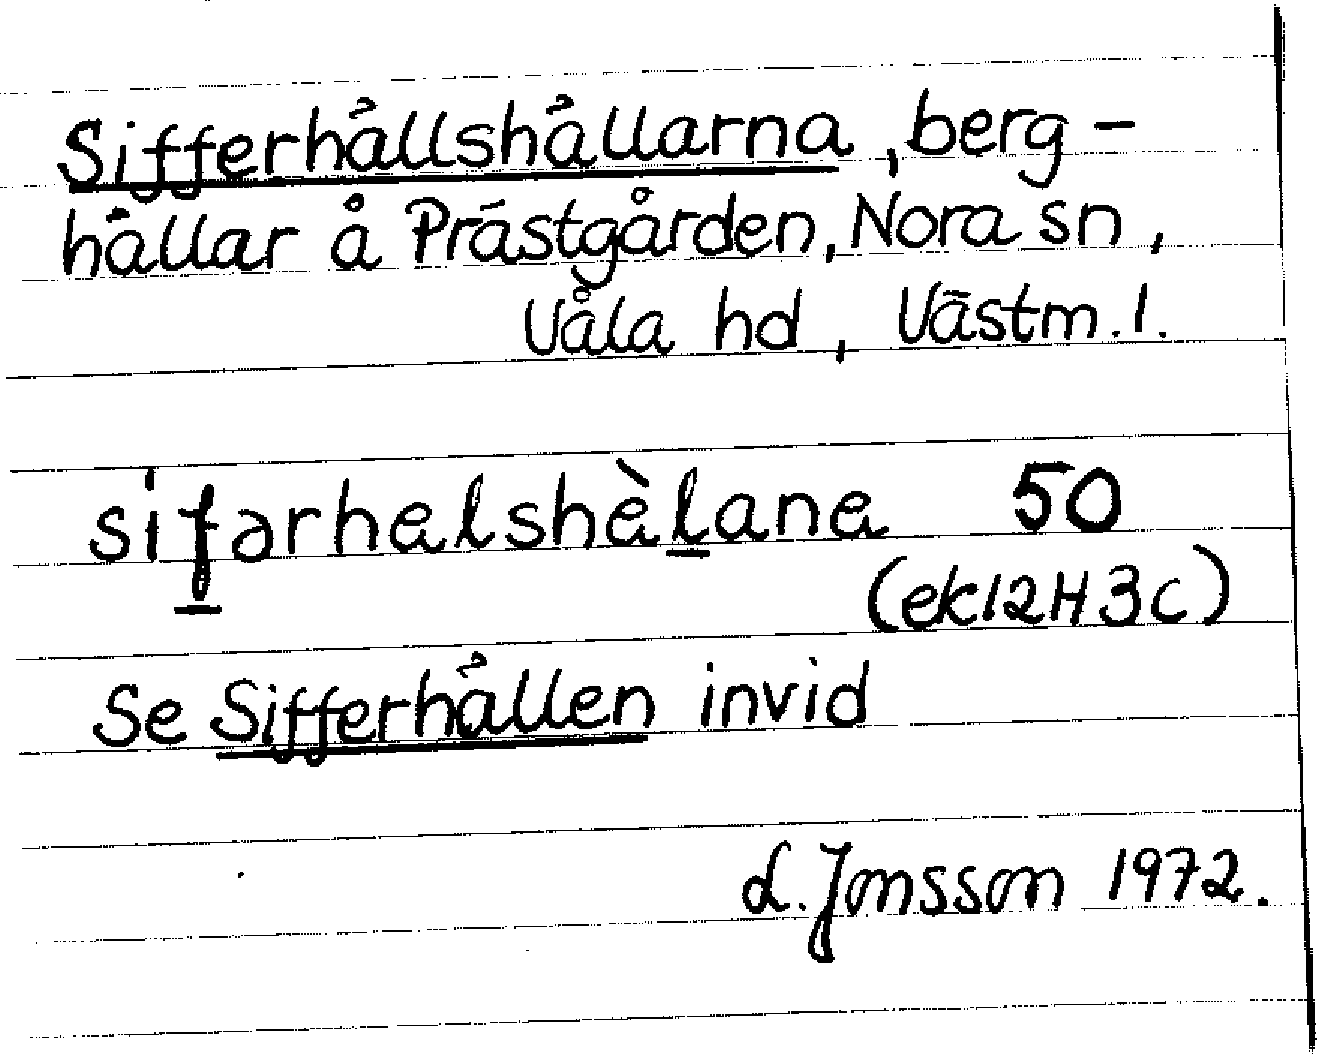 Sifferhällshällarna, berg-
hällar å Prästgården, Nora sn,
Våla hd, Västm. l.
sifərhelshèlana 50
(ek12H3c)
Se Sifferhällen invid
L. Jonsson 1972.